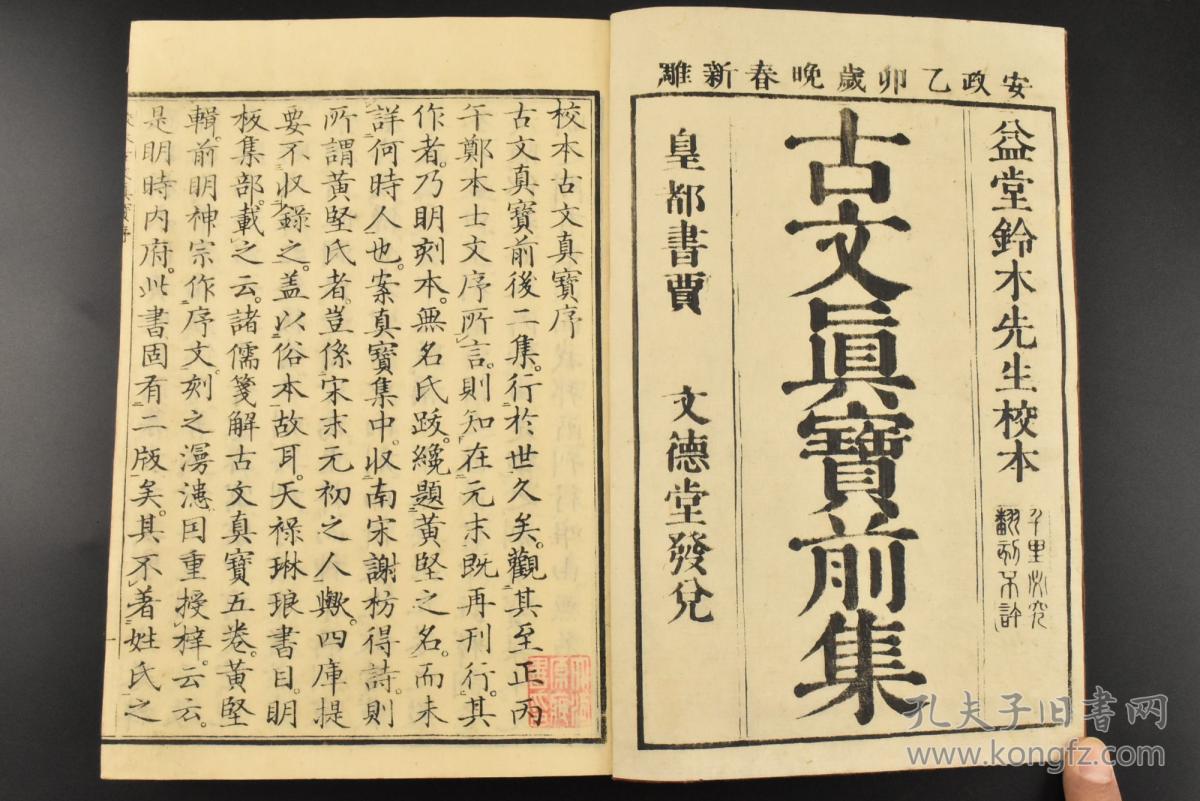 安政乙卯歲晚春新雕
益堂鈴木先生校本
千里必究
翻刻不許
古文眞寶前集
皇都書賈 文德堂發兌
校本古文真寶序
古文真寶前後二集。行於世久矣。觀其至正丙
午鄭本士文序所言。則知在元末既再刊行。其
作者。乃明刻本。無名氏跋。纔題黃堅之名。而未
詳何時人也。案真寶集中。收南宋謝枋得詩。則
所謂黃堅氏者。豈係宋末元初之人歟。四庫提
要不收錄之。蓋以俗本故耳。天祿琳琅書目。明
板集部。載之云。諸儒箋解古文真寶五卷。黃堅
輯。前明神宗作序文。刻之漫漶因重授梓。云云。
是明時内府。此書固有二版矣。其不著姓氏之
孔夫子旧书网
www.kongfz.com